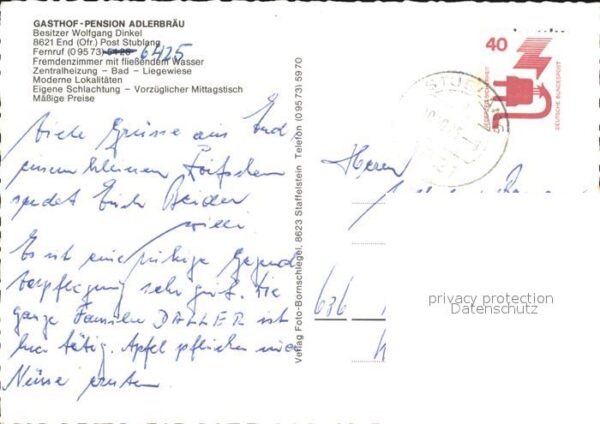 GASTHOF-PENSION ADLERBRÄU
Besitzer Wolfgang Dinkel
8621 End (Ofr.) Post Stublang
Fernruf (0 95 73) 6425
Fremdenzimmer mit fließendem Wasser
Zentralheizung – Bad – Liegewiese
Moderne Lokalitäten
Eigene Schlachtung – Vorzüglicher Mittagstisch
Mäßige Preise
Viele Grüsse aus End
unserem kleinen Dörfchen
sendet Euch Beiden
Willi
Es ist eine ruhige Gegend
Verpflegung sehr gut. Die
ganze Familie DALLER ist
hier tätig. Äpfel pflücken und
Nüsse ernten
Verlag Foto-Bornschlegel, 8623 Staffelstein Telefon (0 95 73) 59 70
40
DEUTSCHE BUNDESPOST
Herrn
636
privacy protection
Datenschutz